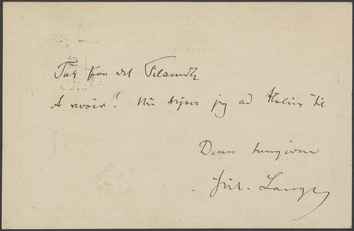 Tak for det
A revoir! Nu rejser jeg ad Italien til
Deres hengivne
Jul. Lange